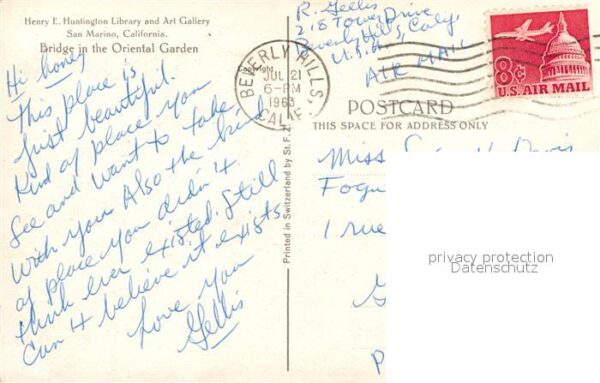 Henry E. Huntington Library and Art Gallery
San Marino, California.
Bridge in the Oriental Garden
Hi honey
This place is
just beautiful.
Kind of place you
see and want to take
with you. Also the kind
of place you didn't
think ever existed. Still
Can't believe it exists
Love you
Gellis
Copyright
Printed in Switzerland by St. F. Z.
R. Gellis
218 Tower Drive
Beverly Hills, Calif.
U.S.A.
AIR MAIL
BEVERLY HILLS,
JUL 21
6-PM
1963
CALIF.
8¢
U.S. AIR MAIL
POSTCARD
THIS SPACE FOR ADDRESS ONLY
Miss Davis
1 rue
privacy protection
Datenschutz